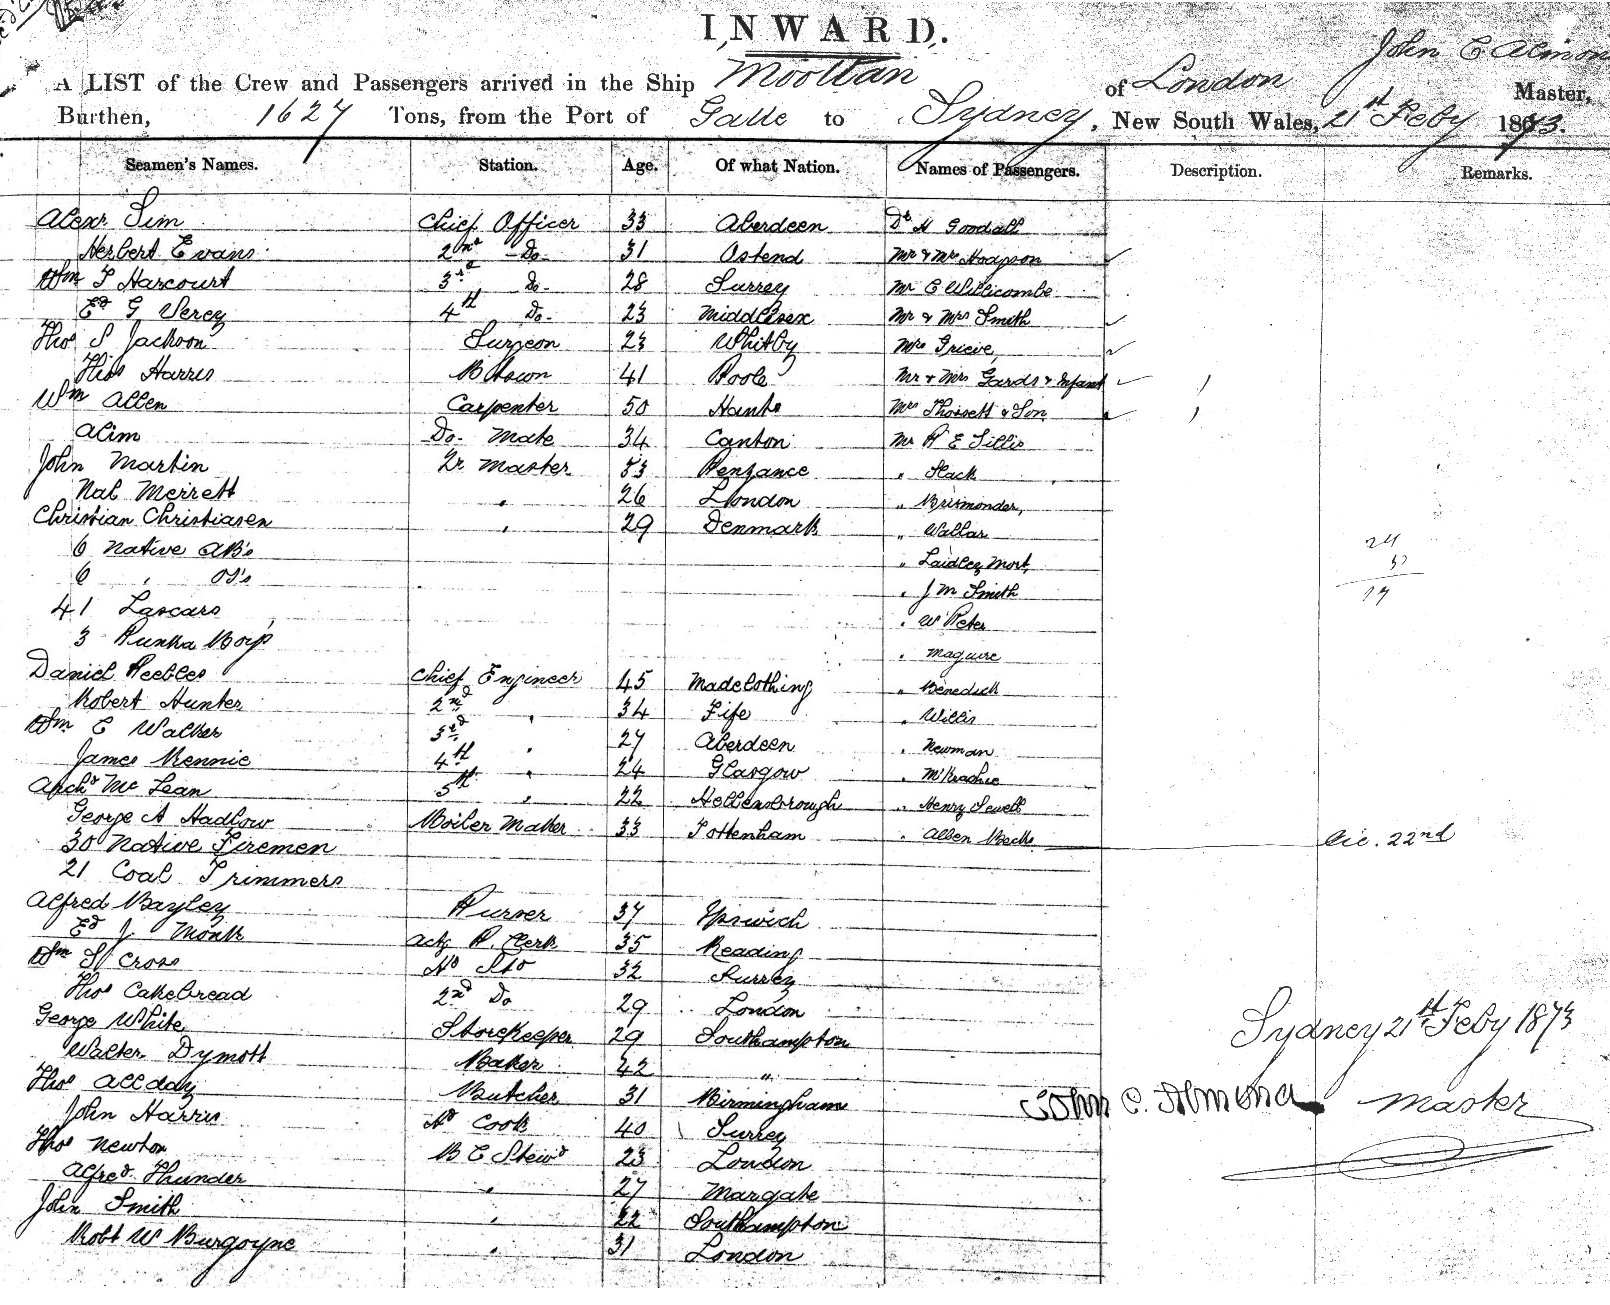 INWARD.
John C Almond
A LIST of the Crew and Passengers arrived in the Ship Mooltan of London Master,
Burthen, 1627 Tons, from the Port of Galle to Sydney, New South Wales, 21st Feby 1873.
Seamen's Names. Station. Age. Of what Nation. Names of Passengers. Description. Remarks.
Alexr Sim Chief Officer 33 Aberdeen Dr H Goodall
Herbert Evans 2nd Do 31 Ostend Mr & Mrs Hodgson
Wm T Harcourt 3rd Do 28 Surrey Mr C Willicombe
Ed G Verey 4th Do 23 Middlesex Mr & Mrs Smith
Thos S Jackson Surgeon 23 Whitby Mrs Grieve
Thos Harris B Aswn 41 Poole Mr & Mrs Gards & Infant
Wm Allen Carpenter 50 Hants Mrs & Son
Alim Do Mate 34 Canton Mr R E Tillis
John Martin Qr Master 53 Penzance " Slack
Nal Merrett " 26 London "
Christian Christiasen " 29 Denmark " Wallar
6 Native AB's " Laidley Mort
6 " OS's " J M Smith
41 Lascars " W Peter
3 Punka Boys " Maguire
Daniel Peebles Chief Engineer 45 " Benedick
Robert Hunter 2nd " 34 Fife " Willis
Wm C Walker 3rd " 27 Aberdeen " Newman
James Rennie 4th " 24 Glasgow "
Archd Mc Lean 5th " 22 Hellensbrough " Henry Sewell
George A Hadlow Boiler Maker 33 Tottenham " Allen Beck Dic. 22nd
30 Native Firemen
21 Coal Trimmers
Alfred Bayley Purser 37 Ipswich
Ed J. Monk Actg P. Clerk 35 Reading
Wm S Cross Hd Std 32 Surrey
Thos Cakebread 2nd Do 29 London
George White Storekeeper 29 Southampton
Walter Dymott Baker 42 "
Thos Allday Butcher 31 Birmingham
John Harris Hd Cook 40 Surrey
Thos Newton B C Stewd 23 London
Alfred Thunder " 27 Margate
John Smith " 22 Southampton
Robt W Burgoyne " 31 London
Sydney 21st Feby 1873
John C. Almond Master